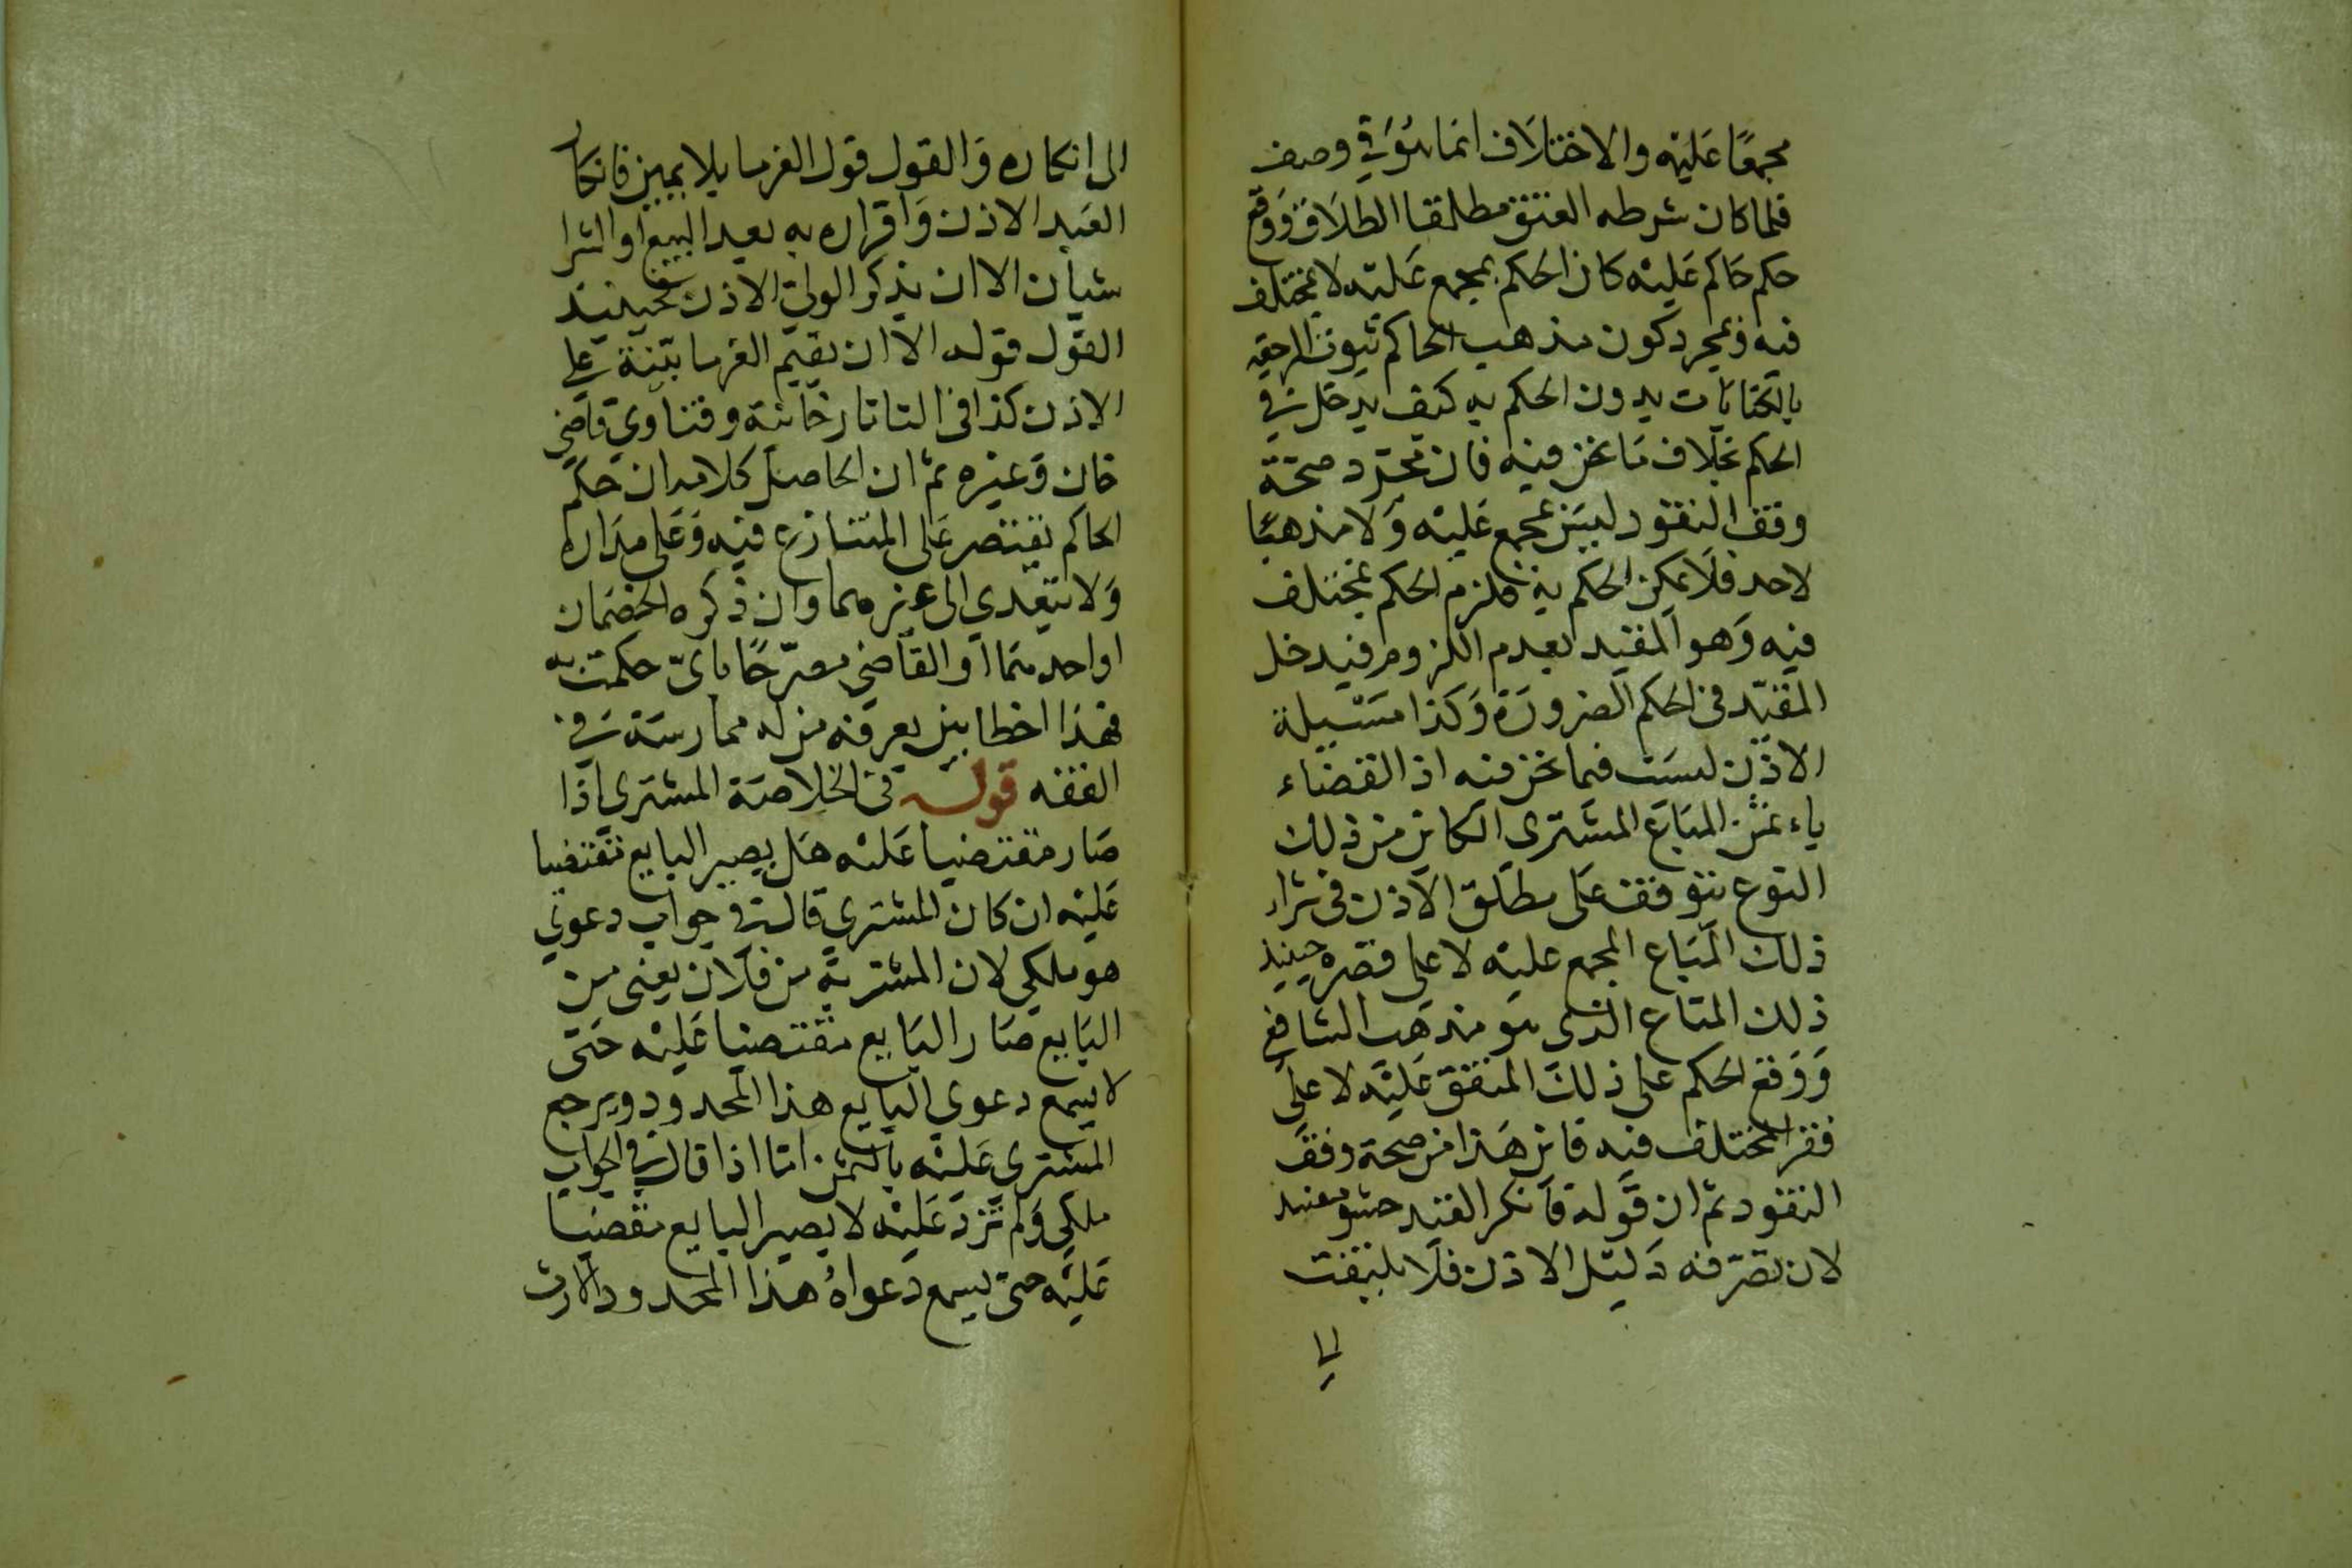 مجمعًا عَليْه والاختلَاف انما هُوَ في وصف
فلما كان شرطه العتق مطلقا الطلَاق وَوَقع
حكم حَاكم عَليْه كان الحكم بمجمع عَليْه لا بمختلف
فيه وبمجرد كون مذهب الحاكم ثبوت الرجعة
بالكنايَات بدون الحكم به كيف يدخل في
الحكم بخلاف مَا نحن فيه فان مجرّد صحّة
وقف النقود ليسَ بمجمع عَليْه وَلا مذهبًا
لاحد فلَا يمكن الحكم به فلزم الحكم بمختلف
فيه وَهو المقيد بعدم اللزوم فيدخل
المقيّد في الحكم الضرورَة وَكذا مسَيلة
الاذن ليسَت فيما نحن فيه اذ القضَاء
باء ثمن المبَاع المشترى الكاين من ذلك
النوع يتوقف عَلى مطلق الاذن في شراء
ذلك المبَاع المجمع عليْه لا على قصره حينيذ
ذلك المتاع الذى هو مذهَب الشافعي
وَوَقع الحكم على ذلك المتفق عَليْه لا على
قصر المختلف فيه فاين هَذا من صحة وقف
النقود ثم ان قوله فانكر القيد حشو مفيد
لان تصرّفه دَليْل الاذن فلَا يلتفت
الى
الى انكاره وَالقول قول الغرما بلا يمين فانكار
العَبد الاذن وَاقراره به بعد البيع او الشرا
سيان الا ان يذكر الولى الاذن فحينيذ
القول قوله الا ان يقيم الغرما بيّنة على
الاذن كذا في التاتارخانية وفتاوي قاضي
خان وَغيره ثم ان الحاصل كلامه ان حكم
الحاكم يقتصر عَلى المتنازع فيه وَعَلى مدَاره
وَلا يتعَدي الى غيرهما وان ذكره الخصْمان
او احدهما او القاضي مصرّحًا باىّ حكمت به
فهَذا اخطا بين يعرفه من له ممارسَة في
الفقه قوله في الخلاصَة المشترى اذا
صَار مقتضيا عَليْه هَل يصير البايع مقتضيا
عَليْه ان كان المشتري قال في جواب دعوي
هو ملكي لان المشتريه من فلَان يعنى من
البَايع صَار البَايع مقتضيا عَليْه حَتى
لا يسمع دعوى البايع هذا المحدود ويرجع
المشترى عَليْه بالثمن امّا اذا قال في الجواب
ملكي وَلم يزد عَليْه لا يصير البايع مقضيا
عَليْه حتى يسمع دعواهُ هذا المحدود والارث